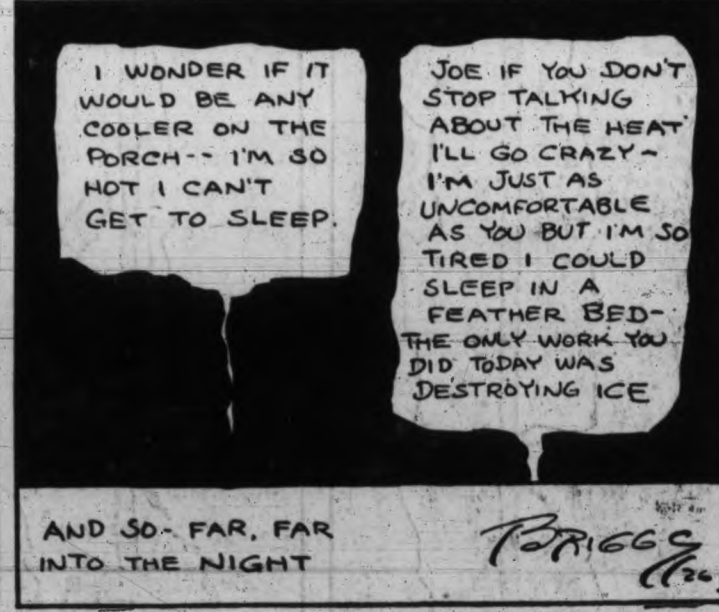 I WONDER IF IT
WOULD BE ANY
COOLER ON THE
PORCH-- I'M SO
HOT I CAN'T
GET TO SLEEP.
JOE IF YOU DON'T
STOP TALKING
ABOUT THE HEAT
I'LL GO CRAZY~
I'M JUST AS
UNCOMFORTABLE
AS YOU BUT I'M SO
TIRED I COULD
SLEEP IN A
FEATHER BED-
THE ONLY WORK YOU
DID TODAY WAS
DESTROYING ICE
AND SO- FAR, FAR
INTO THE NIGHT
BRIGGS
26